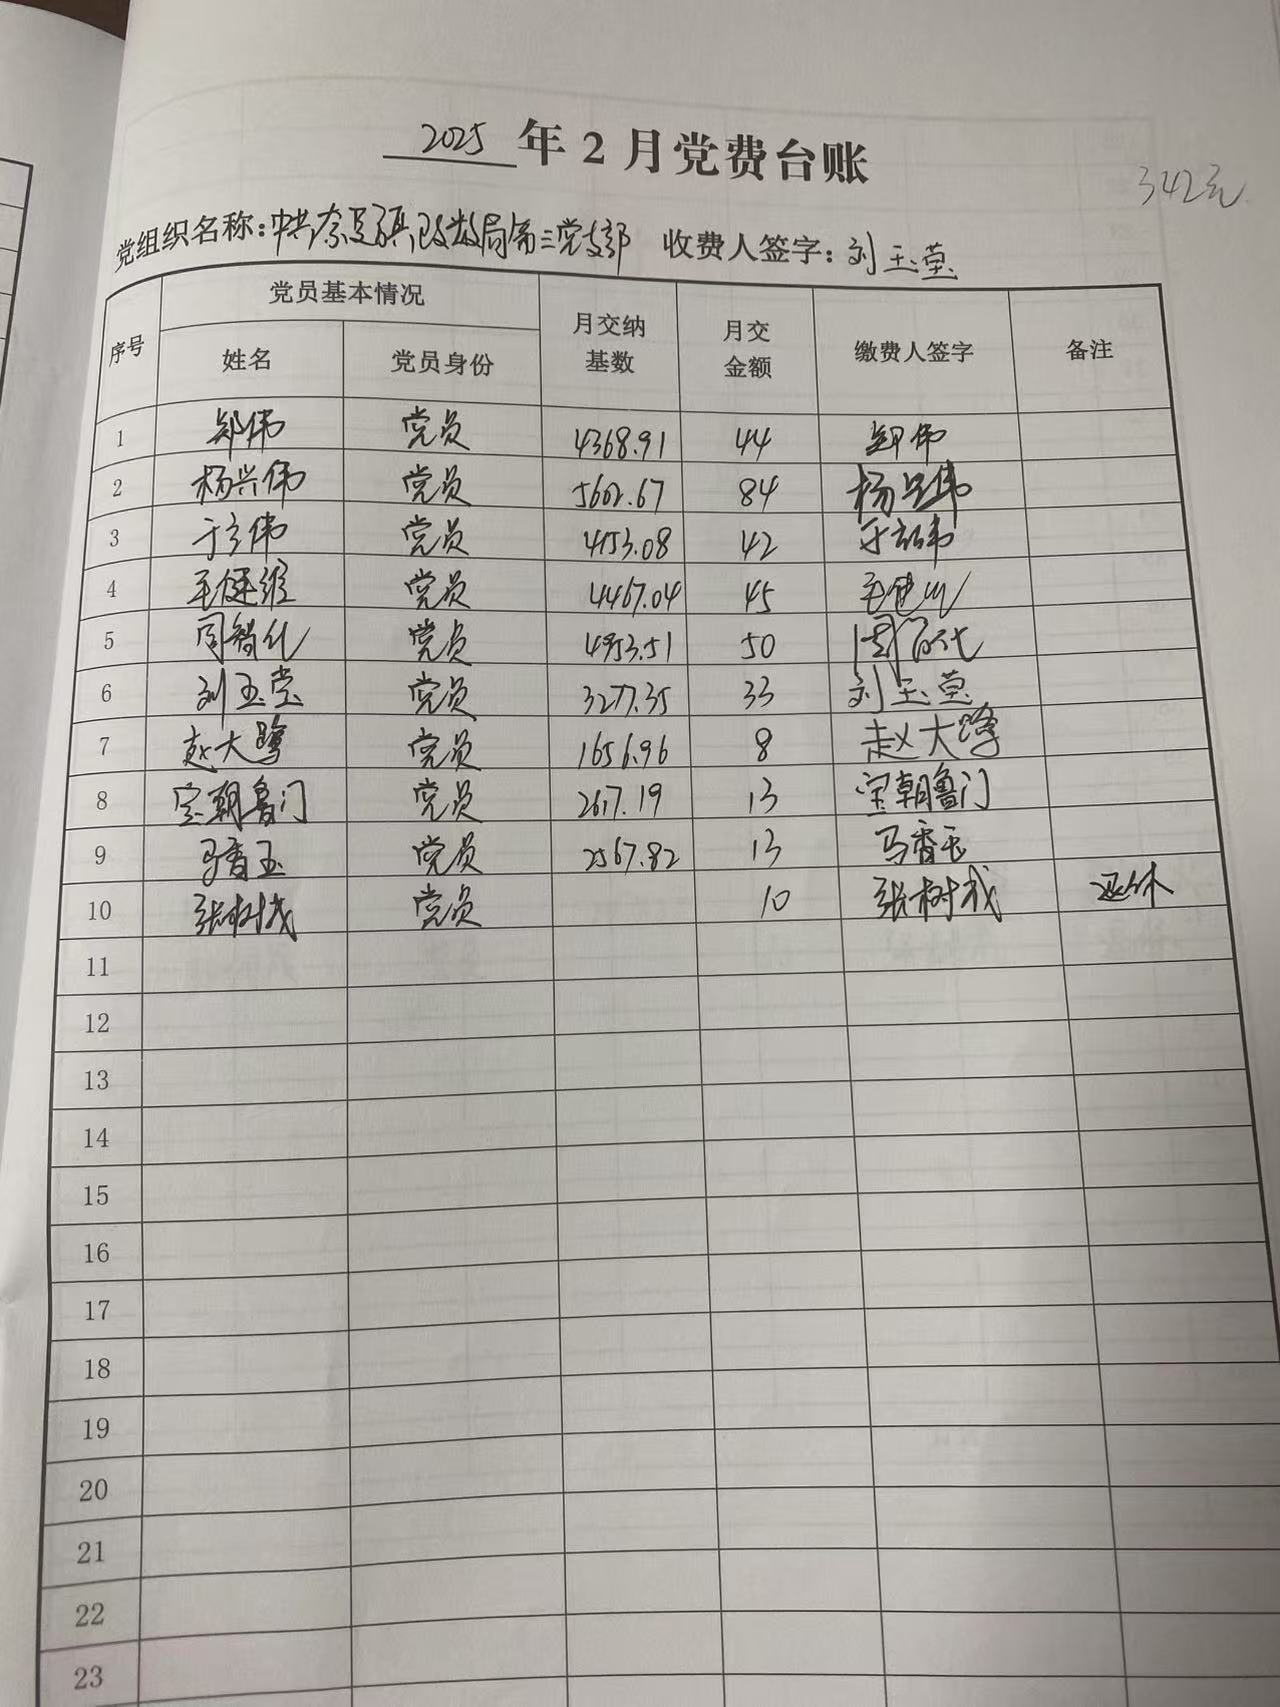 2025 年 2 月党费台账
342元
党组织名称：中共奈曼旗政数局第三党支部 收费人签字：刘玉莹
序号 党员基本情况 月交纳基数 月交金额 缴费人签字 备注
姓名 党员身份
1 郑伟 党员 4368.91 44 郑伟
2 杨兴伟 党员 5602.67 84 杨兴伟
3 于立伟 党员 4153.08 42
4 毛健维 党员 4467.04 45
5 周智化 党员 4953.51 50
6 刘玉莹 党员 3277.35 33 刘玉莹
7 赵大鹏 党员 1656.96 8 赵大
8 宝朝鲁门 党员 2617.19 13 宝朝鲁门
9 马香玉 党员 2567.82 13 马香玉
10 张树成 党员 10 张树成 退休
11
12
13
14
15
16
17
18
19
20
21
22
23